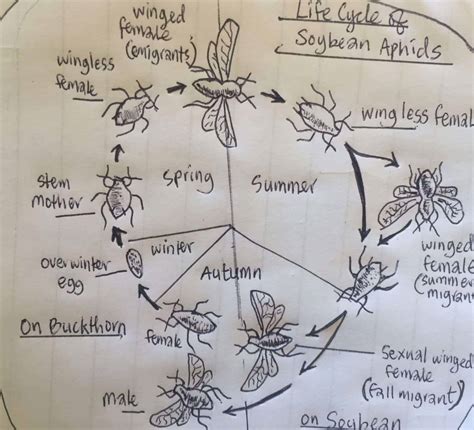 Life Cycle of
Soybean Aphids
winged
female
(emigrants)
wingless
female
wingless femal
stem
mother
Spring
Summer
winter
over winter
egg
Autumn
winged
female
(summer
migran
On Buckthorn
female
male
Sexual winged
female
(fall migrant)
on Soybean